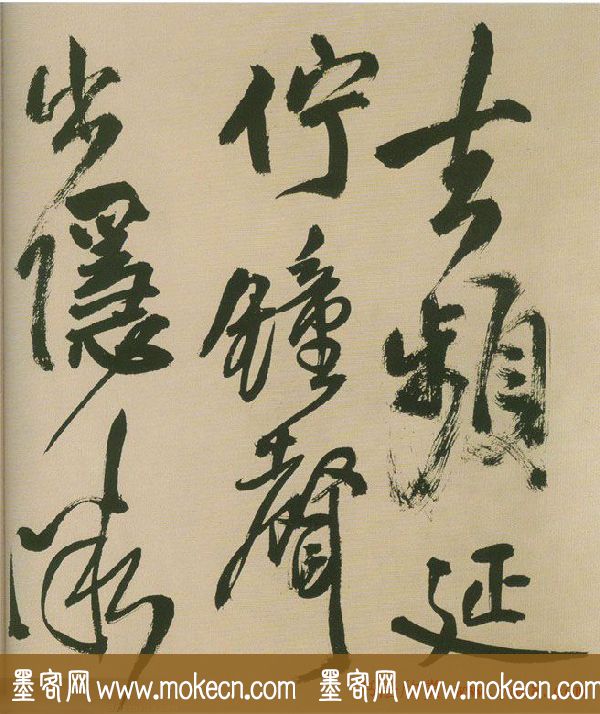 去頻延
佇鐘聲
出隱
墨客网 www.mokecn.com 墨客网 www.mokecn.com